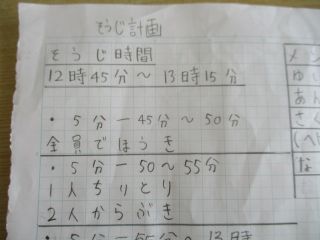 そうじ計画
そうじ時間
12時45分〜13時15分
・5分ー45分〜50分
全員でほうき
・5分ー50〜55分
1人ちりとり
2人からぶき
・5分ー55分〜13時
メン
ゆい
あん
さく
(へ
な